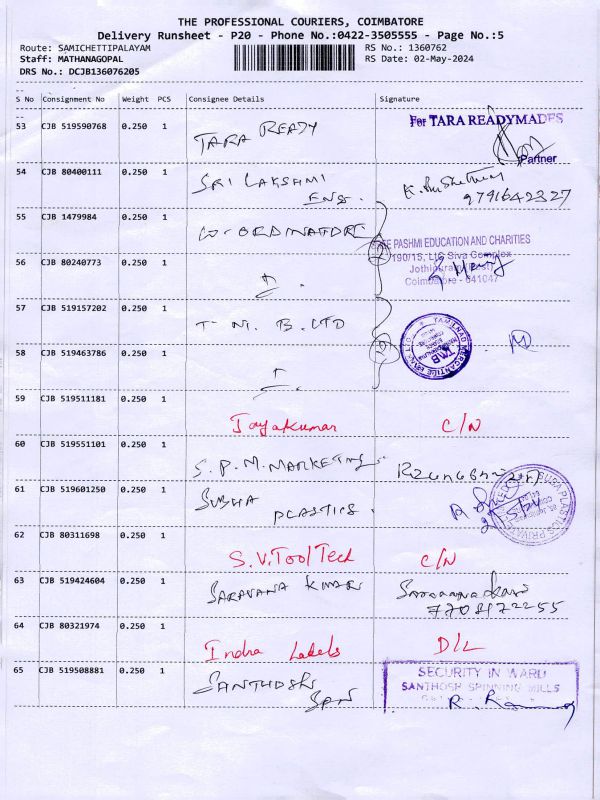 THE PROFESSIONAL COURIERS, COIMBATORE
Delivery Runsheet - P20 - Phone No.:0422-3505555 - Page No.:5
Route: SAMICHETTIPALAYAM
RS No.: 1360762
Staff: MATHANAGOPAL
RS Date: 02-May-2024
DRS No.: DCJB136076205
S No Consignment No Weight PCS Consignee Details Signature
53 CJB 519590768 0.250 1 TARA READY For TARA READYMADES
Partner
54 CJB 80400111 0.250 1 SRI LAKSHMI
ENG.
9791642327
55 CJB 1479984 0.250 1 CO-ORDINATOR
PASHMI EDUCATION AND CHARITIES
190/15, LIC Siva Complex
56 CJB 80240773 0.250 1
Coimbatore - 641047
57 CJB 519157202 0.250 1 T. M. B. LTD
TAMILNAD MERCANTILE BANK LTD
TMB
58 CJB 519463786 0.250 1
59 CJB 519511181 0.250 1 Jayakumar C/N
60 CJB 519551101 0.250 1 S.P.M. MARKETING
61 CJB 519601250 0.250 1 SUBHA
PLASTICS.
62 CJB 80311698 0.250 1 S.V. Tool Tech C/N
63 CJB 519424604 0.250 1 SARAVANA KUMAR
64 CJB 80321974 0.250 1 Indra Labels D/L
65 CJB 519508881 0.250 1 SANTHOSH
SPN
SECURITY IN WARD
SANTHOSH SPINNING MILLS